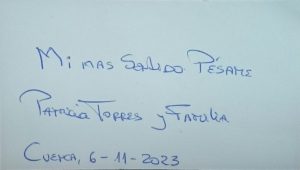 Mi mas Sentido Pésame
Patricia Torres y Familia
Cuenca, 6-11-2023